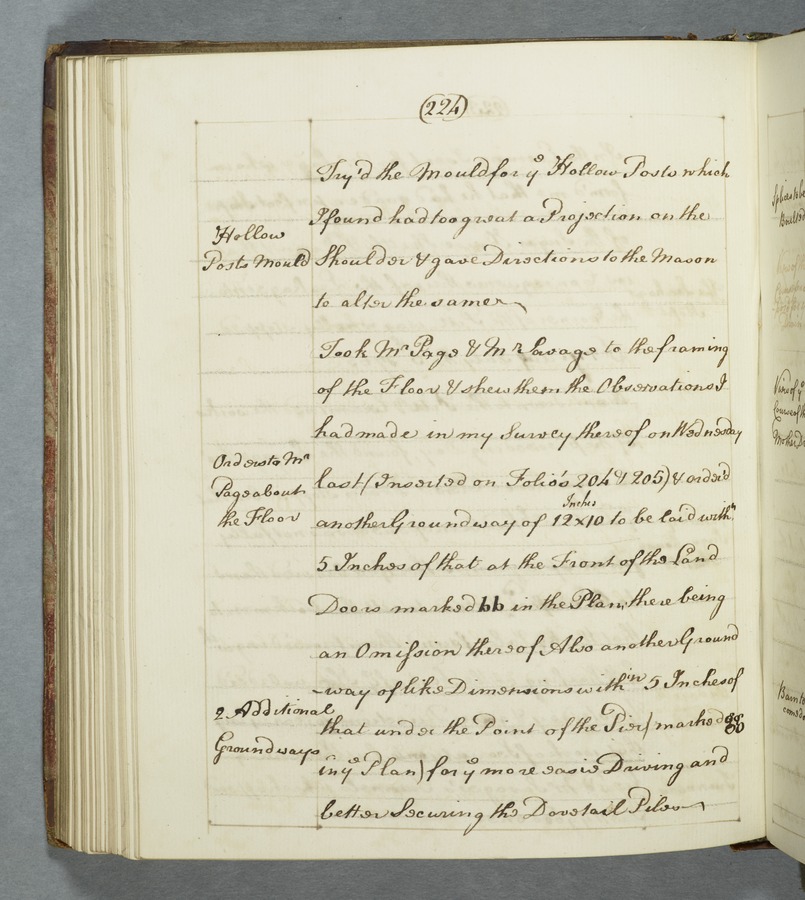 (224)
Try'd the Mould for yᵉ Hollow Posts which
I found had too great a Projection on the
Hollow
Posts Mould
Shoulder & gave Directions to the Mason
to alter the same
Took Mʳ Page & Mʳ Savage to the framing
of the Floor & shew them the Observations I
had made in my Survey thereof on Wednesday
Orders to Mʳ
Page about
the Floor
last (Inserted on Folio's 204 & 205) & order'd
another Groundway of 12 x 10 Inches to be laid withⁿ
5 Inches of that at the Front of the Land
Doors marked bb in the Plan, there being
an Omission thereof Also another Ground
-way of like Dimensions withⁱⁿ 5 Inches of
2 Additional
Groundways
that under the Point of the Pier (marked gg
in yᵉ Plan) for yᵉ more easie Driving and
better Securing the Dovetail Piles